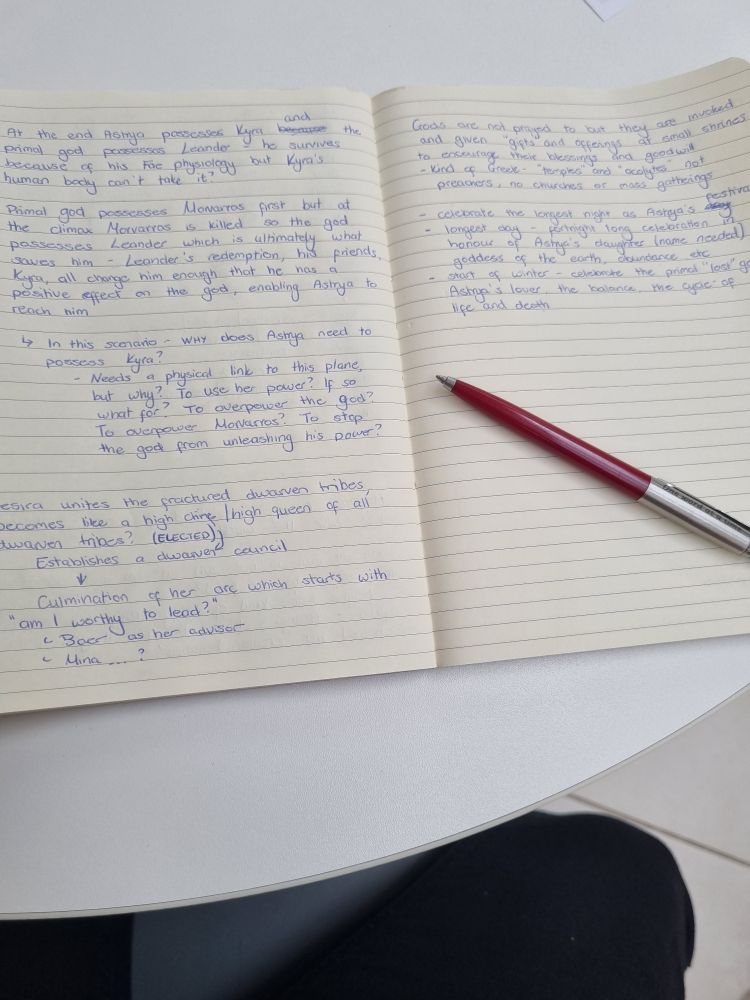 At the end Astrya possesses Kyra and the
primal god possesses Leander - he survives
because of his Fae physiology but Kyra's
human body can't take it?
Primal god possesses Morvarros first but at
the climax Morvarros is killed so the god
possesses Leander which is ultimately what
saves him - Leander's redemption, his friends,
Kyra, all change him enough that he has a
positive effect on the god, enabling Astrya to
reach him
↳ In this scenario - WHY does Astrya need to
possess Kyra?
- Needs a physical link to this plane,
but why? To use her power? If so
what for? To overpower the god?
To overpower Morvarros? To stop
the god from unleashing his power?
esira unites the fractured dwarven tribes,
becomes like a high / high queen of all
dwarven tribes? (ELECTED)
Establishes a dwarven council
↓
Culmination of her arc which starts with
"am I worthy to lead?"
as her advisor
Mina ...?
Gods are not prayed to but they are invoked
and given "gifts and offerings at small shrines
to encourage their blessings and goodwill
- Kind of Greek - "temples" and "acolytes" not
preachers, no churches or mass gatherings
- celebrate the longest night as Astrya's festiva
- longest day - fortnight long celebration in
honour of Astrya's daughter (name needed)
goddess of the earth, abundance etc
- start of winter - celebrate the primal "lost" go
Astrya's lover, the balance, the cycle of
life and death